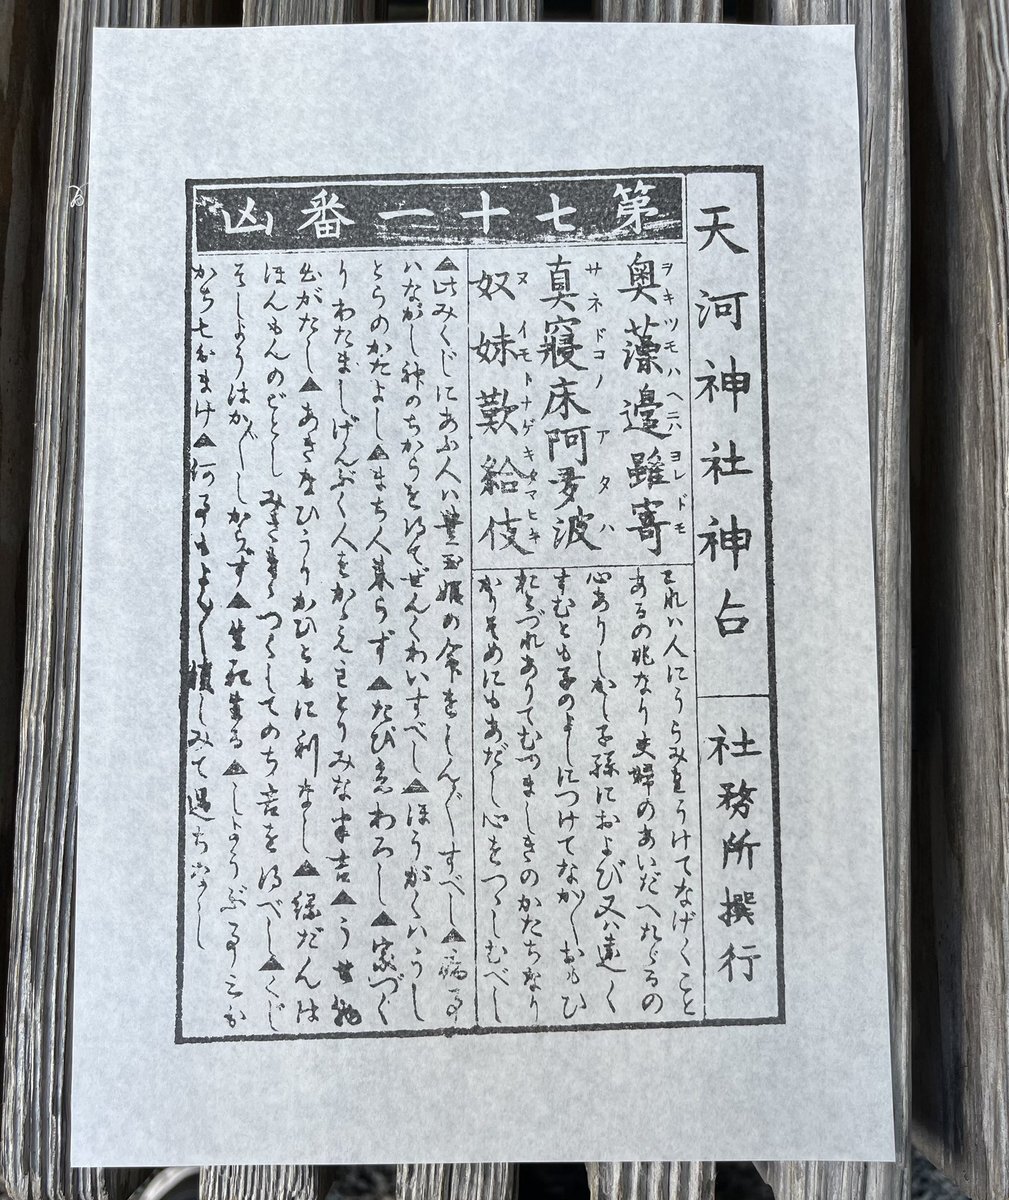 天河神社神占
社務所撰行
第七十一番凶
奥藻邉雖寄
ヲキツモハヘニハヨレドモ
真寢床阿夛波
サネドコノアタハ
奴妹歎給伎
ヌイモトナゲキタマヒキ
これハ人にうらみをうけてなげくこと
あるの兆なり夫婦のあいだへたゝるの
心ありしかし子孫におよび又ハ遠く
すむとも子のよしにつけてなか〱おもひ
おとづれありてむつましきのかたちなり
かりそめにもあだし心をつゝしむべし
▲此みくじにあふ人ハ豊玉姫の命をしん〲すべし▲病事
ハながし神のちからを得てぜんくわいすべし▲ほうがくハうし
とらのかたよし▲まち人来らず▲たび立わろし▲家づく
りわたましげんぶく人をかゝえ主とりみな半吉▲うせ物
出がたし▲あきなひうりかひともに利なし▲縁だんは
ほんもんのごとし
つくしてのち吉を得べし▲くじ
そしようはか〲しからず▲生死生る▲しようぶ事三か
かち七分まけ▲何事もよく〱慎しみて過ちなし